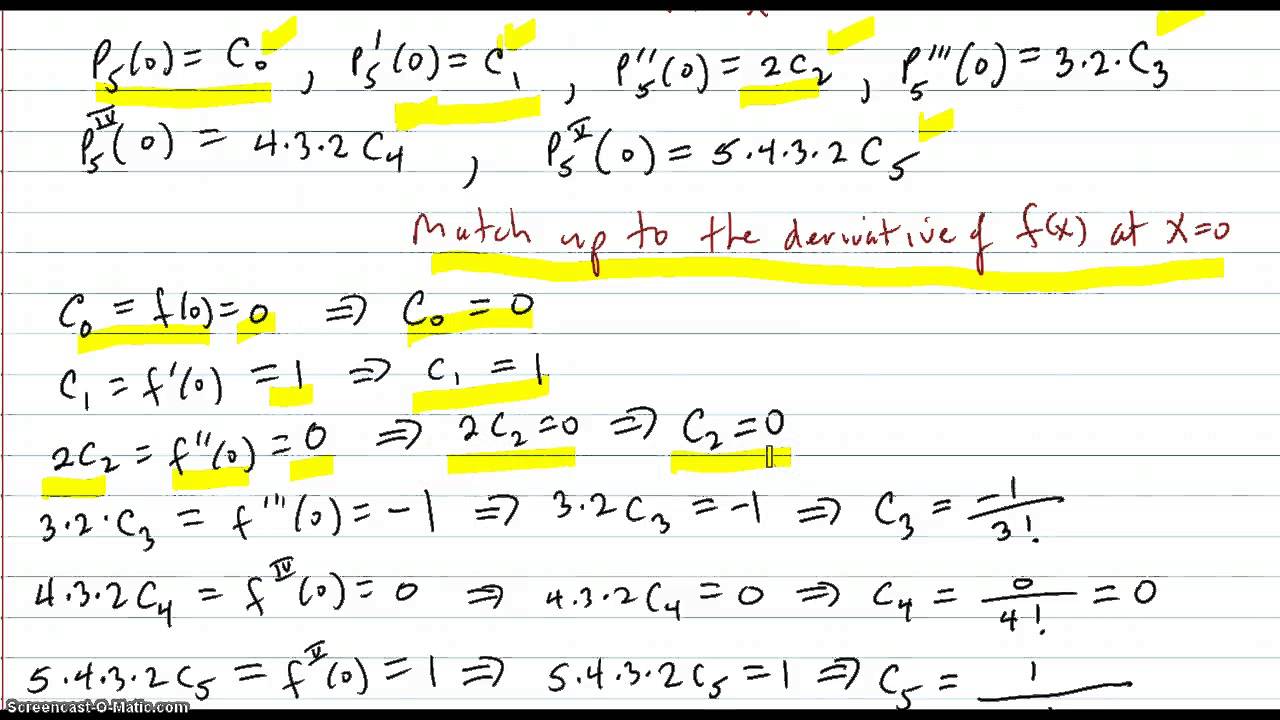 P₅(0) = C₀ , P₅'(0) = C₁ , P₅''(0) = 2C₂ , P₅'''(0) = 3·2·C₃
P₅ᴵⱽ(0) = 4·3·2C₄ , P₅ⱽ(0) = 5·4·3·2C₅
Match up to the derivative of f(x) at x=0
C₀ = f(0) = 0 ⇒ C₀ = 0
C₁ = f'(0) = 1 ⇒ C₁ = 1
2C₂ = f''(0) = 0 ⇒ 2C₂ = 0 ⇒ C₂ = 0
3·2·C₃ = f'''(0) = -1 ⇒ 3·2C₃ = -1 ⇒ C₃ = -1/3!
4·3·2C₄ = fᴵⱽ(0) = 0 ⇒ 4·3·2C₄ = 0 ⇒ C₄ = 0/4! = 0
5·4·3·2C₅ = fⱽ(0) = 1 ⇒ 5·4·3·2C₅ = 1 ⇒ C₅ = 1/
Screencast-O-Matic.com